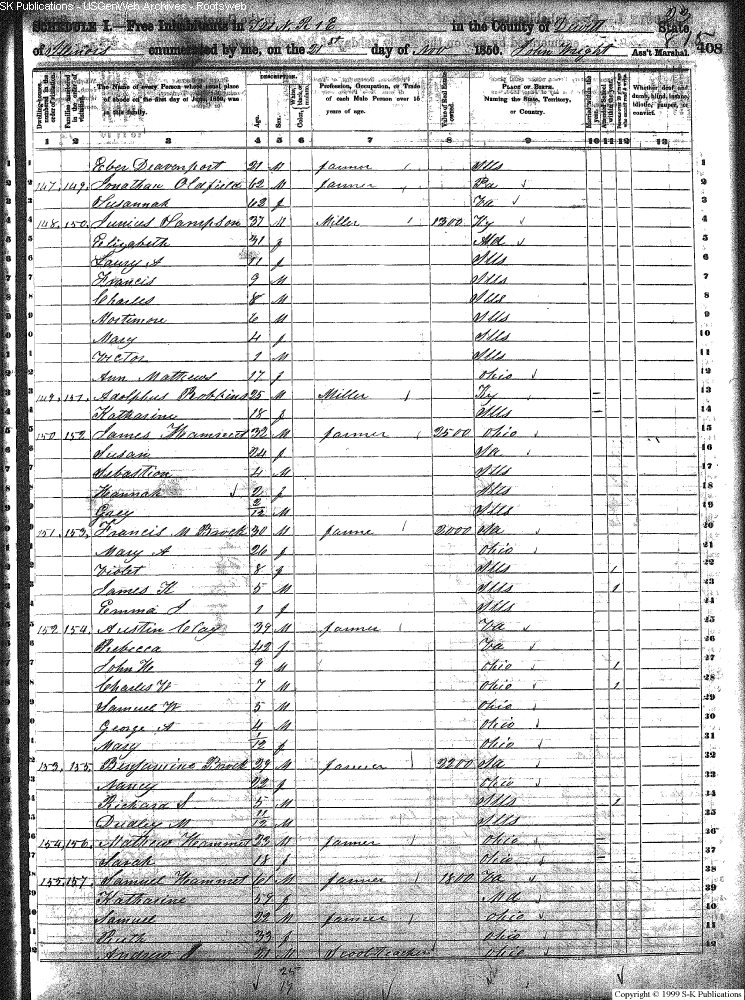 SK Publications - USGenWeb Archives - Rootsweb
SCHEDULE I.—Free Inhabitants in in the County of Dewitt State
of Illinois enumerated by me, on the 21st day of Nov 1850. John Wright Ass't Marshal. 408
Dwelling-houses numbered in the order of visitation. Families numbered in the order of visitation. The Name of every Person whose usual place of abode on the first day of June, 1850, was in this family. DESCRIPTION. Age. Sex. Color Profession, Occupation, or Trade of each Male Person over 15 years of age. Value of Real Estate owned. PLACE OF BIRTH. Naming the State, Territory, or Country. Married within the year. Whether deaf and dumb, blind, insane, idiotic, pauper, or convict.
1 2 3 4 5 6 7 8 9 10 11 12 13
1 Eber Deavenport 21 M farmer Ills 1
2 147 149 Jonathan Oldfield 62 M farmer Pa 2
3 Susannah 62 f Va 3
4 148 150 Junius Sampson 37 M Miller 1300 Ky 4
5 Elizabeth 31 f Md 5
6 Laury A 11 f Ills 6
7 Francis 9 M Ills 7
8 Charles 8 M Ills 8
9 Mortimore 6 M Ills 9
0 Mary 4 f Ills 10
1 Victor 1 M Ills 11
2 Ann Mathews 17 f Ohio 12
3 149 151 Adolphus Robbins 25 M Miller Ky 13
4 Katharine 18 f Ills 14
5 150 152 James Hammett 32 M farmer 2500 Ohio 15
6 Susan 24 f 16
7 Sebastion 4 M Ills 17
8 Hannah 2 f Ills 18
9 2/12 M Ills 19
0 151 153 Francis M Brock 30 M farme 2000 20
1 Mary A 26 f Ohio 21
2 Violet 8 f Ills 1 22
3 James H 5 M Ills 1 23
4 Emma J 1 f Ills 24
5 152 154 Austin Clay 39 M farmer Va 25
6 Rebecca 42 f Va 26
7 John W 9 M Ohio 1 27
8 Charles W 7 M Ohio 1 28
9 Samuel W 5 M Ohio 29
0 George A 4 M Ohio 30
1 Mary 1/12 f Ohio 31
2 153 155 Benjamine Brock 29 M farmer 2200 32
3 Nancy 22 f Ohio 33
4 Richard S 5 M Ills 1 34
5 Dudley M 11/12 M Ills 35
6 154 156 Mathew Hammet 23 M farmer Ohio 36
7 Sarah 18 f Ohio 37
8 155 157 Samuel Hammet 61 M farmer 1800 Va 38
9 Katharine 59 f Md 39
0 Samuel 22 M farmer Ohio 40
1 Ruth 33 f Ohio 41
2 Andrew 21 M Scool Teacher Ohio 42
25
17
Copyright © 1999 S-K Publications